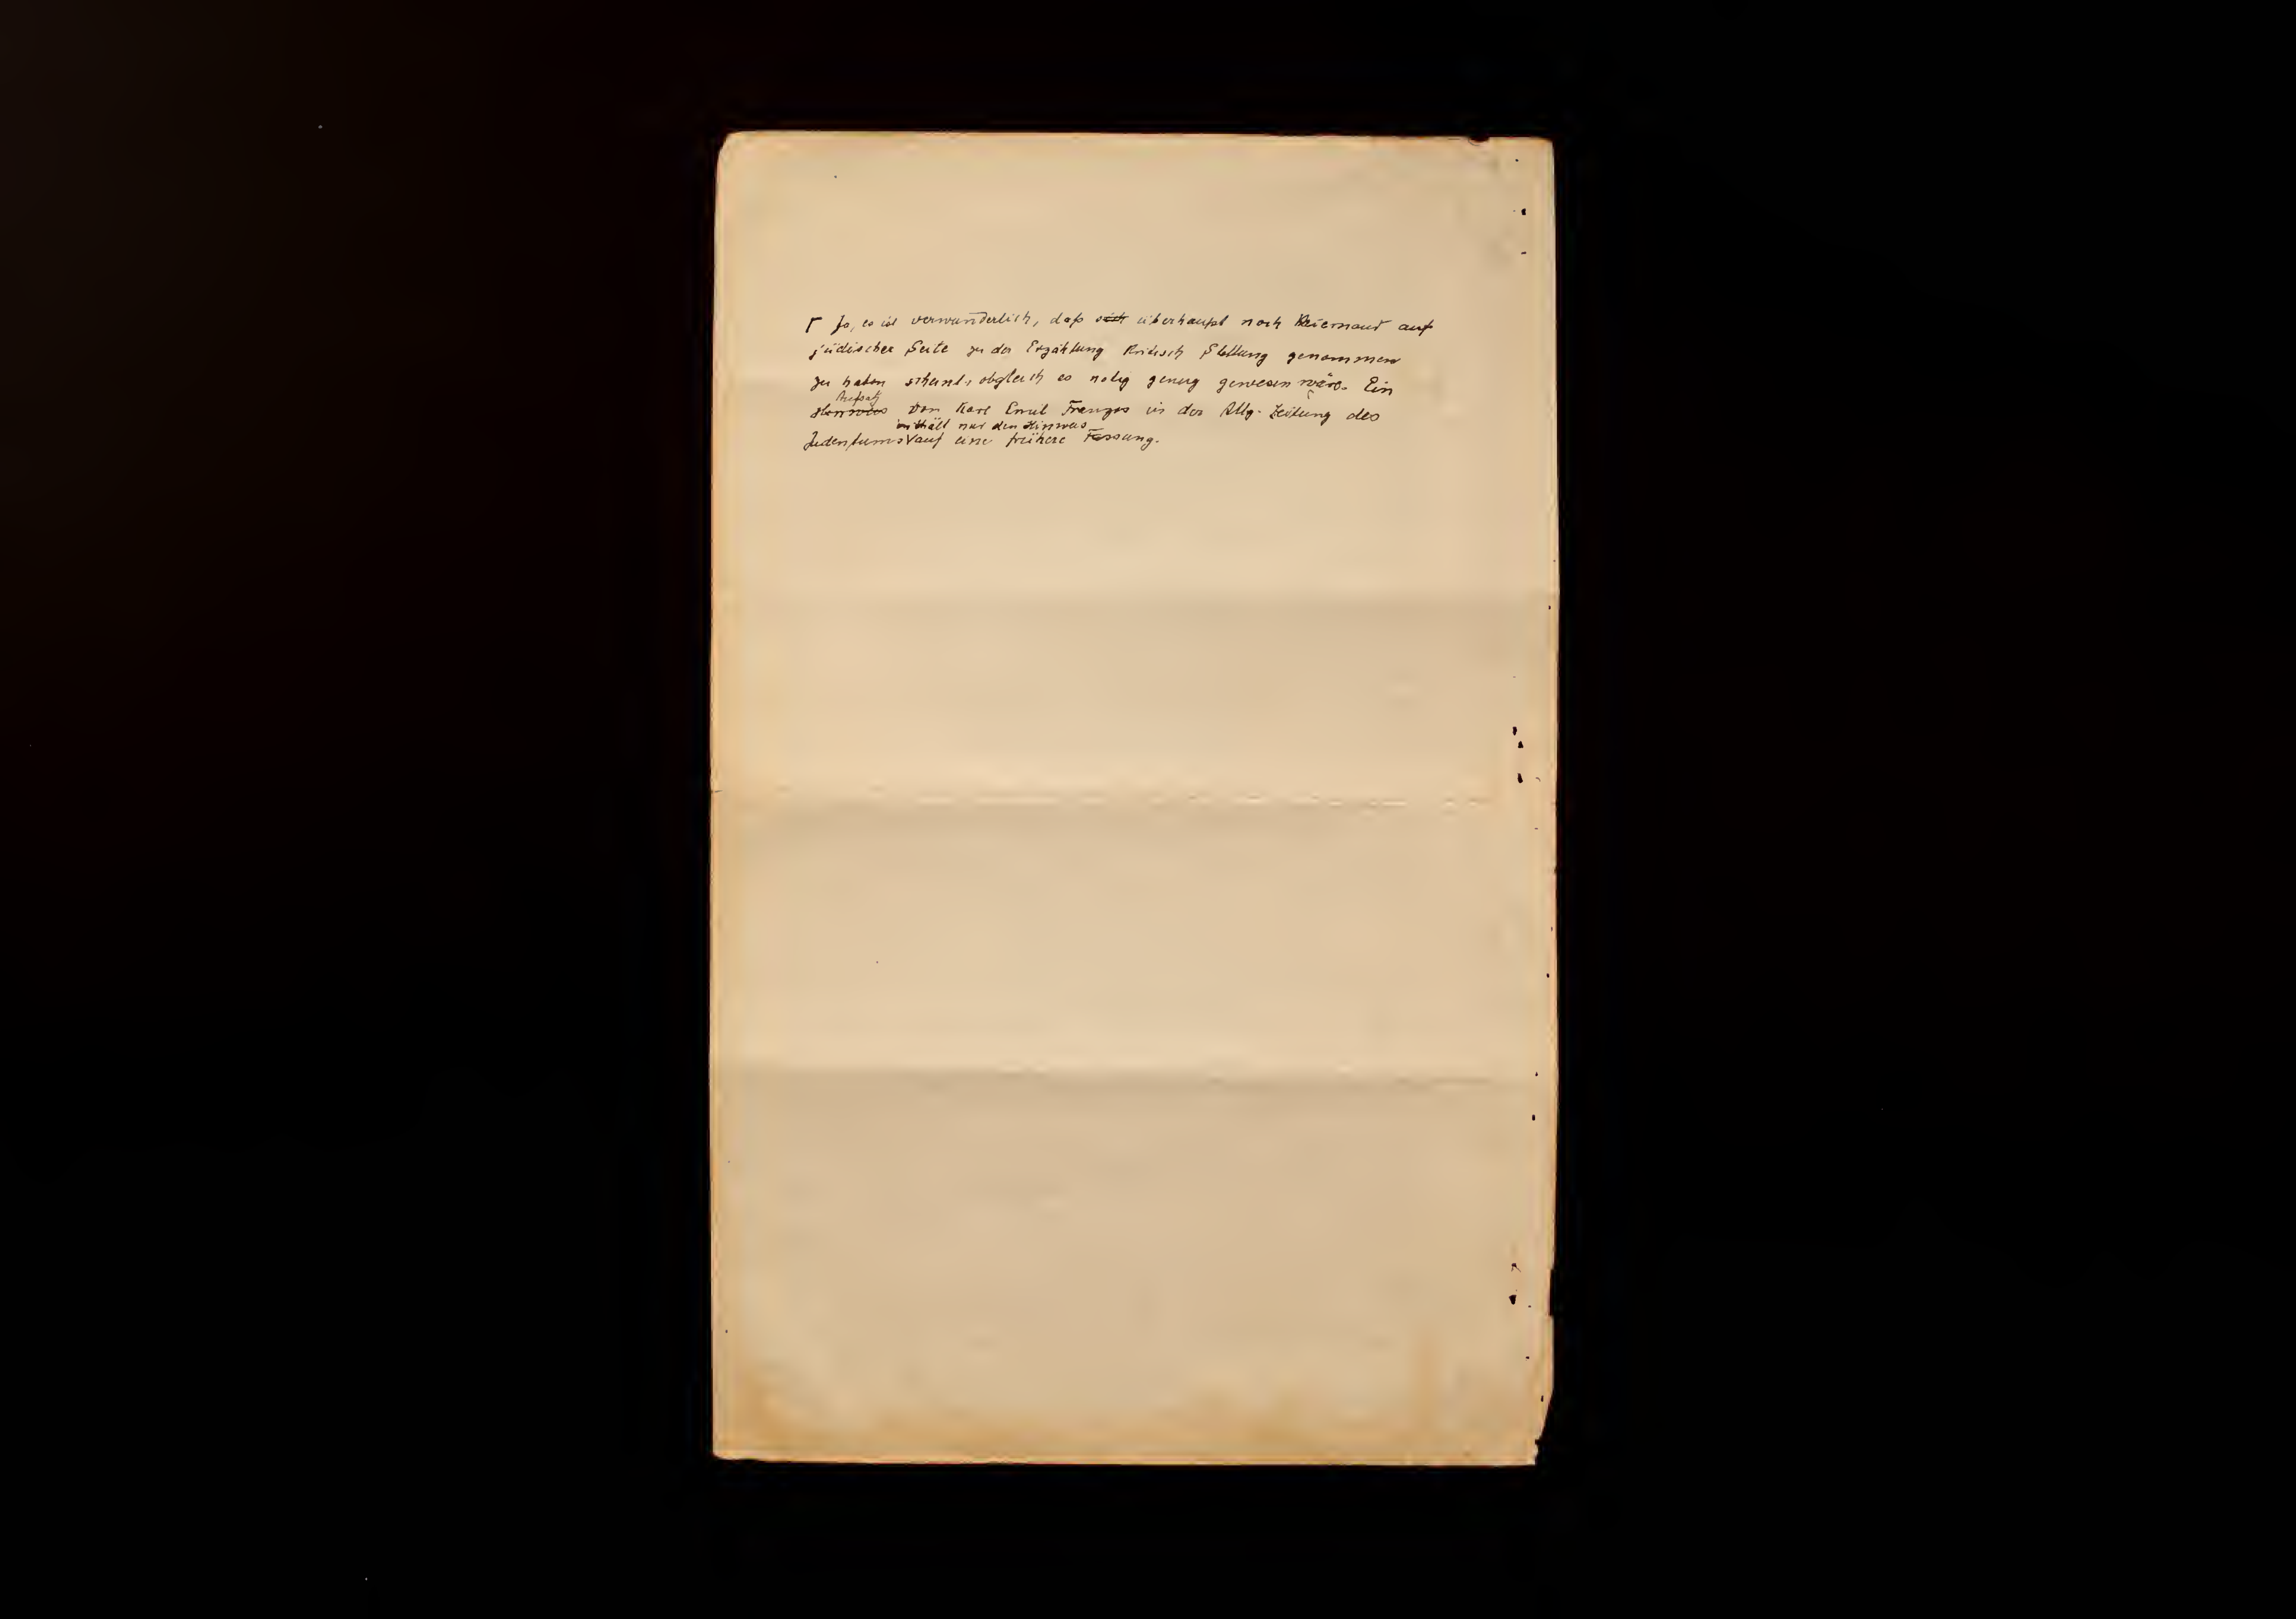 Γ Ja, es ist verwunderlich, daß sich überhaupt noch Niemand auf
jüdischer Seite zu der Erzählung kritisch Stellung genommen
zu haben scheint, obgleich es nötig genug gewesen wäre. Ein
Aufsatz
Hinweis von Karl Emil Franzos in der Allg. Zeitung des
enthält nur den Hinweis
Judentums auf eine frühere Fassung.